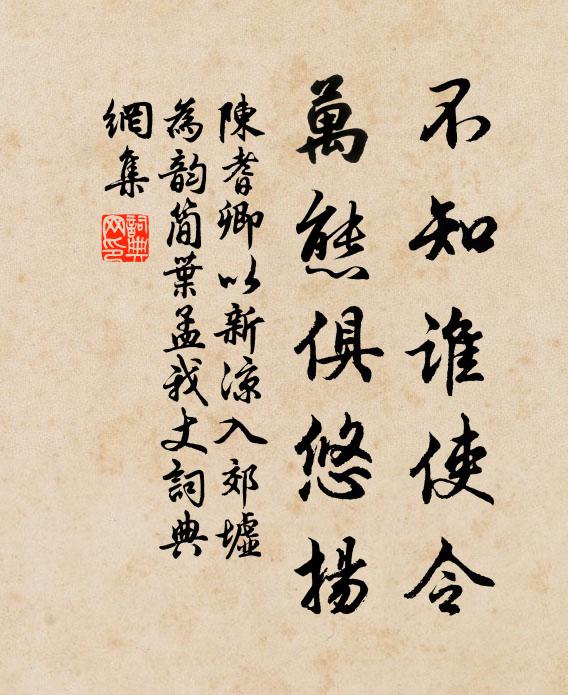 不知谁使令
萬態俱悠揚
陳耆卿以新涼入郊墟
為韵簡葉孟我丈詞典
網集
詞典網印